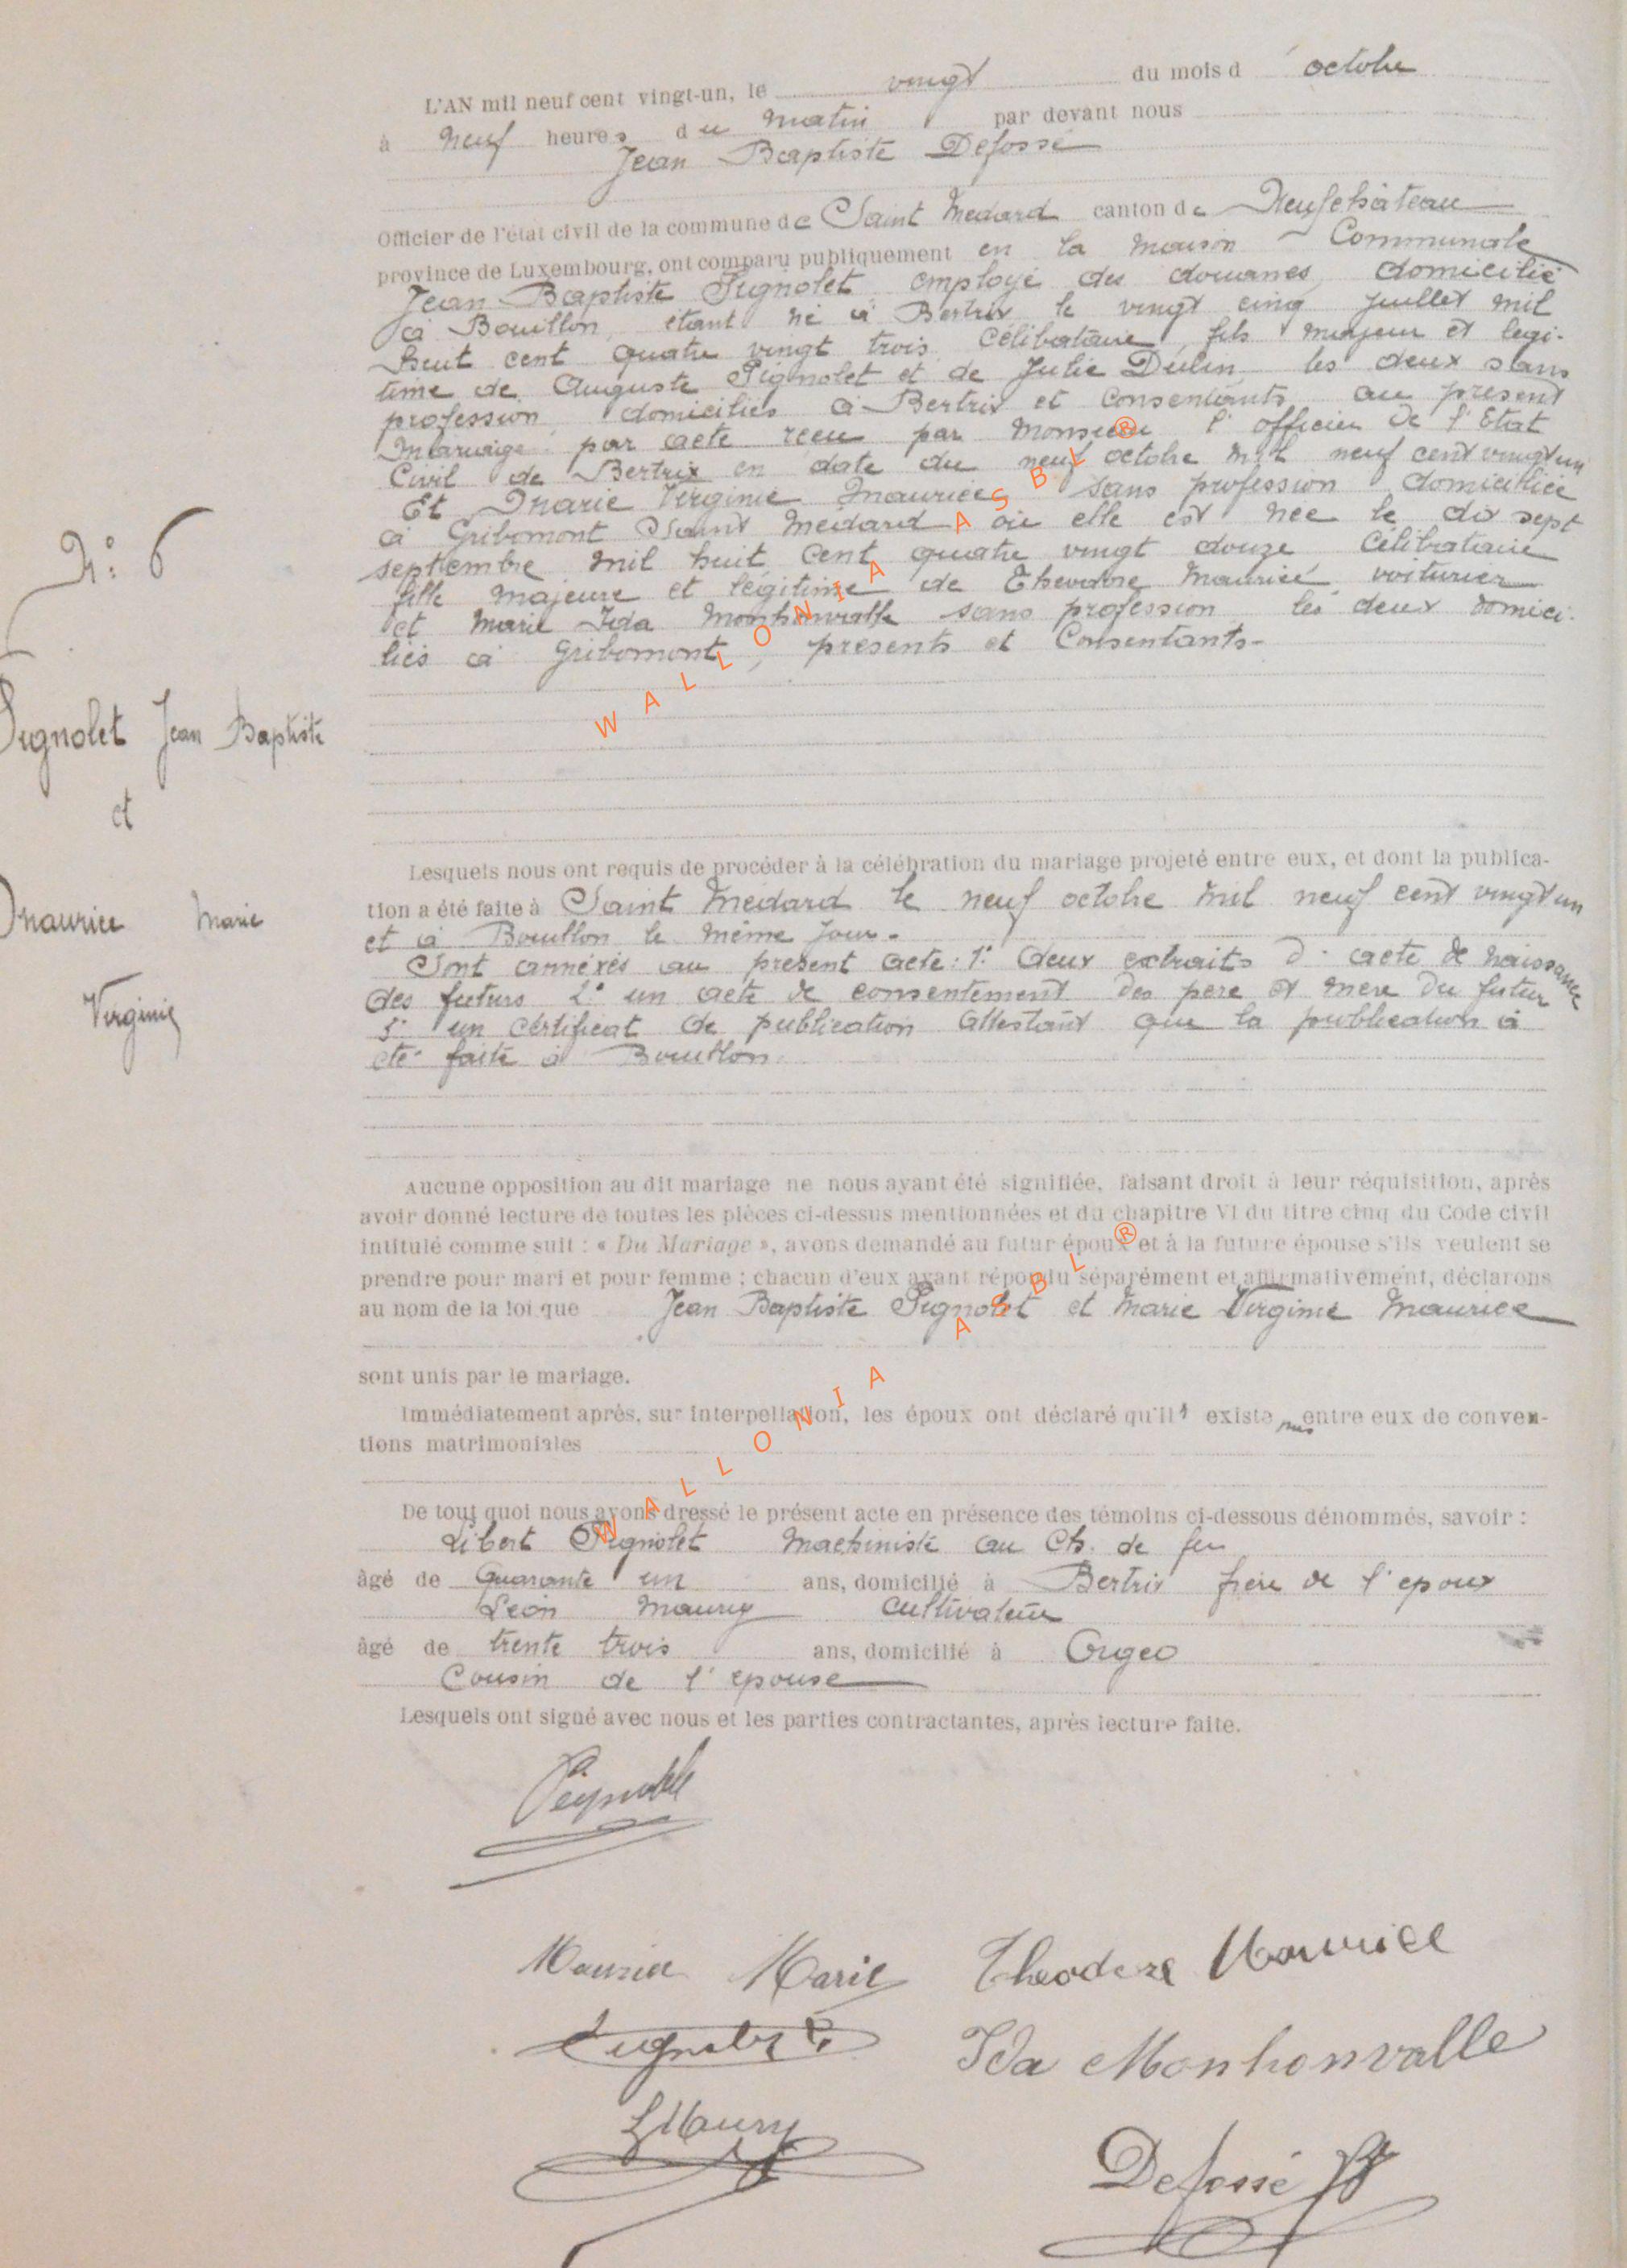 L'AN mil neuf cent vingt-un, le vingt du mois d' octobre
à neuf heures du matin par devant nous
Jean Baptiste Defossé
Officier de l'état civil de la commune de Saint Médard canton de Neufchâteau
province de Luxembourg, ont comparu publiquement en la maison Communale
Jean Baptiste Pignolet employé des douanes, domicilié
à Bouillon, étant né à Bertrix le vingt cinq juillet mil
huit cent quatre vingt trois, célibataire, fils majeur et légi-
time de Auguste Pignolet et de Julie Dulin les deux sans
profession, domiciliés à Bertrix et consentants au présent
mariage par acte reçu par monsieur l'officier de l'Etat
Civil de Bertrix en date du neuf octobre mil neuf cent vingt un
Et Marie Virginie Maurice sans profession domiciliée
à Gribomont Saint Médard où elle est née le dix sept
septembre mil huit cent quatre vingt douze célibataire
fille majeure et légitime de Maurice voiturier
et Marie Ida Monhonvalle sans profession les deux domici-
liés à Gribomont, présents et Consentants-
N° 6
Pignolet Jean Baptiste
et
Maurice Marie
Virginie
Lesquels nous ont requis de procéder à la célébration du mariage projeté entre eux, et dont la publica-
tion a été faite à Saint Médard le neuf octobre mil neuf cent vingt un
et à Bouillon le même jour.
Sont annéxés au présent acte: 1° deux extraits d'acte de naissance
des futurs 2° un acte de consentement des père et mère du futur
3° un certificat de publication attestant que la publication a
été faite à Bouillon.
Aucune opposition au dit mariage ne nous ayant été signifiée, faisant droit à leur réquisition, après
avoir donné lecture de toutes les pièces ci-dessus mentionnées et du chapitre VI du titre cinq du Code civil
intitulé comme suit : « Du Mariage », avons demandé au futur époux et à la future épouse s'ils veulent se
prendre pour mari et pour femme ; chacun d'eux ayant répondu séparément et affirmativement, déclarons
au nom de la loi que Jean Baptiste Pignolet et Marie Virginie Maurice
sont unis par le mariage.
Immédiatement après, sur interpellation, les époux ont déclaré qu'il n'existe pas entre eux de conven-
tions matrimoniales
De tout quoi nous avons dressé le présent acte en présence des témoins ci-dessous dénommés, savoir :
Libert Pignolet Machiniste au Ch. de fer
âgé de Quarante un ans, domicilié à Bertrix frère de l'époux
Léon Maury Cultivateur
âgé de trente trois ans, domicilié à Orgeo
Cousin de l'épouse
Lesquels ont signé avec nous et les parties contractantes, après lecture faite.
Maurice Marie Theodore Maurice
Ida Monhonvalle
L Maury
Defossé
WALLONIA ASBL ®
WALLONIA ASBL ®